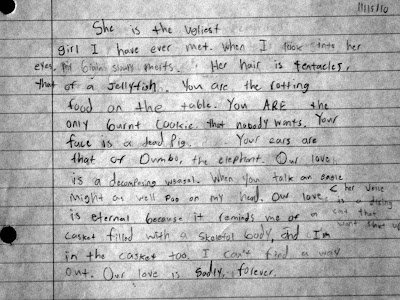 11/15/10
She is the ugliest
girl I have ever met. When I look into her
eyes, my brain slowly melts. Her hair is tentacles,
that of a Jellyfish. You are the rotting
food on the table. You ARE the
only burnt cookie that nobody wants. Your
face is a dead pig. Your ears are
that of Dumbo, the elephant. Our love
is a decomposing weasel. When you talk an angle
might as well Poo on my head. Our love < her voice
is eternal because it reminds me of a is a dying
casket filled with a skeletal body, and I'm cat that
in the casket too. I can't find a way won't shut up
out. Our love is sadly, forever.